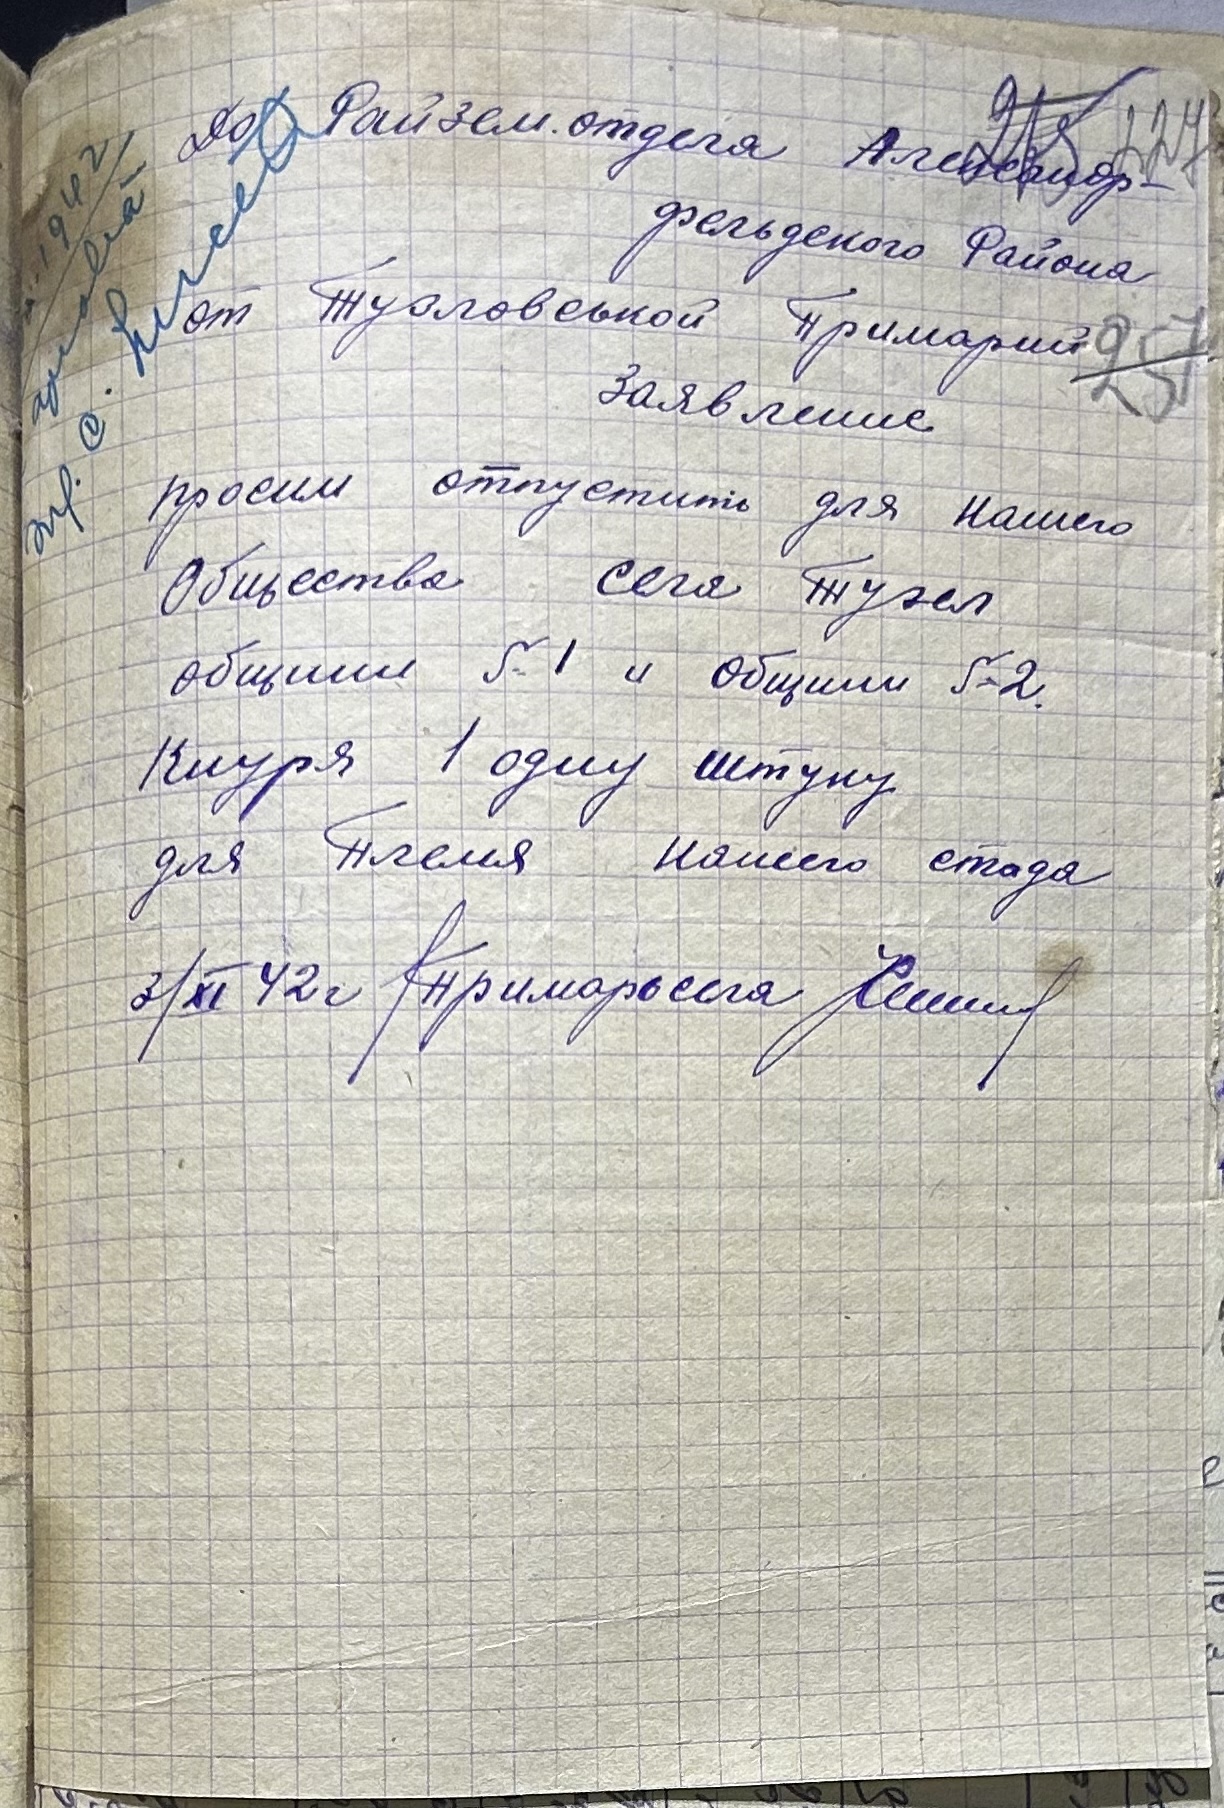 До Райзем. отдела Александр-
фельдского Района
от Тузловськой Примарии
Заявление
просим отпустить для нашего
Общества села Тузел
общини №1 и общини №2.
Кнуря 1 одну штуку
для племя нашего стада
3/XI 42 г Примарь села
1942
215 227
257